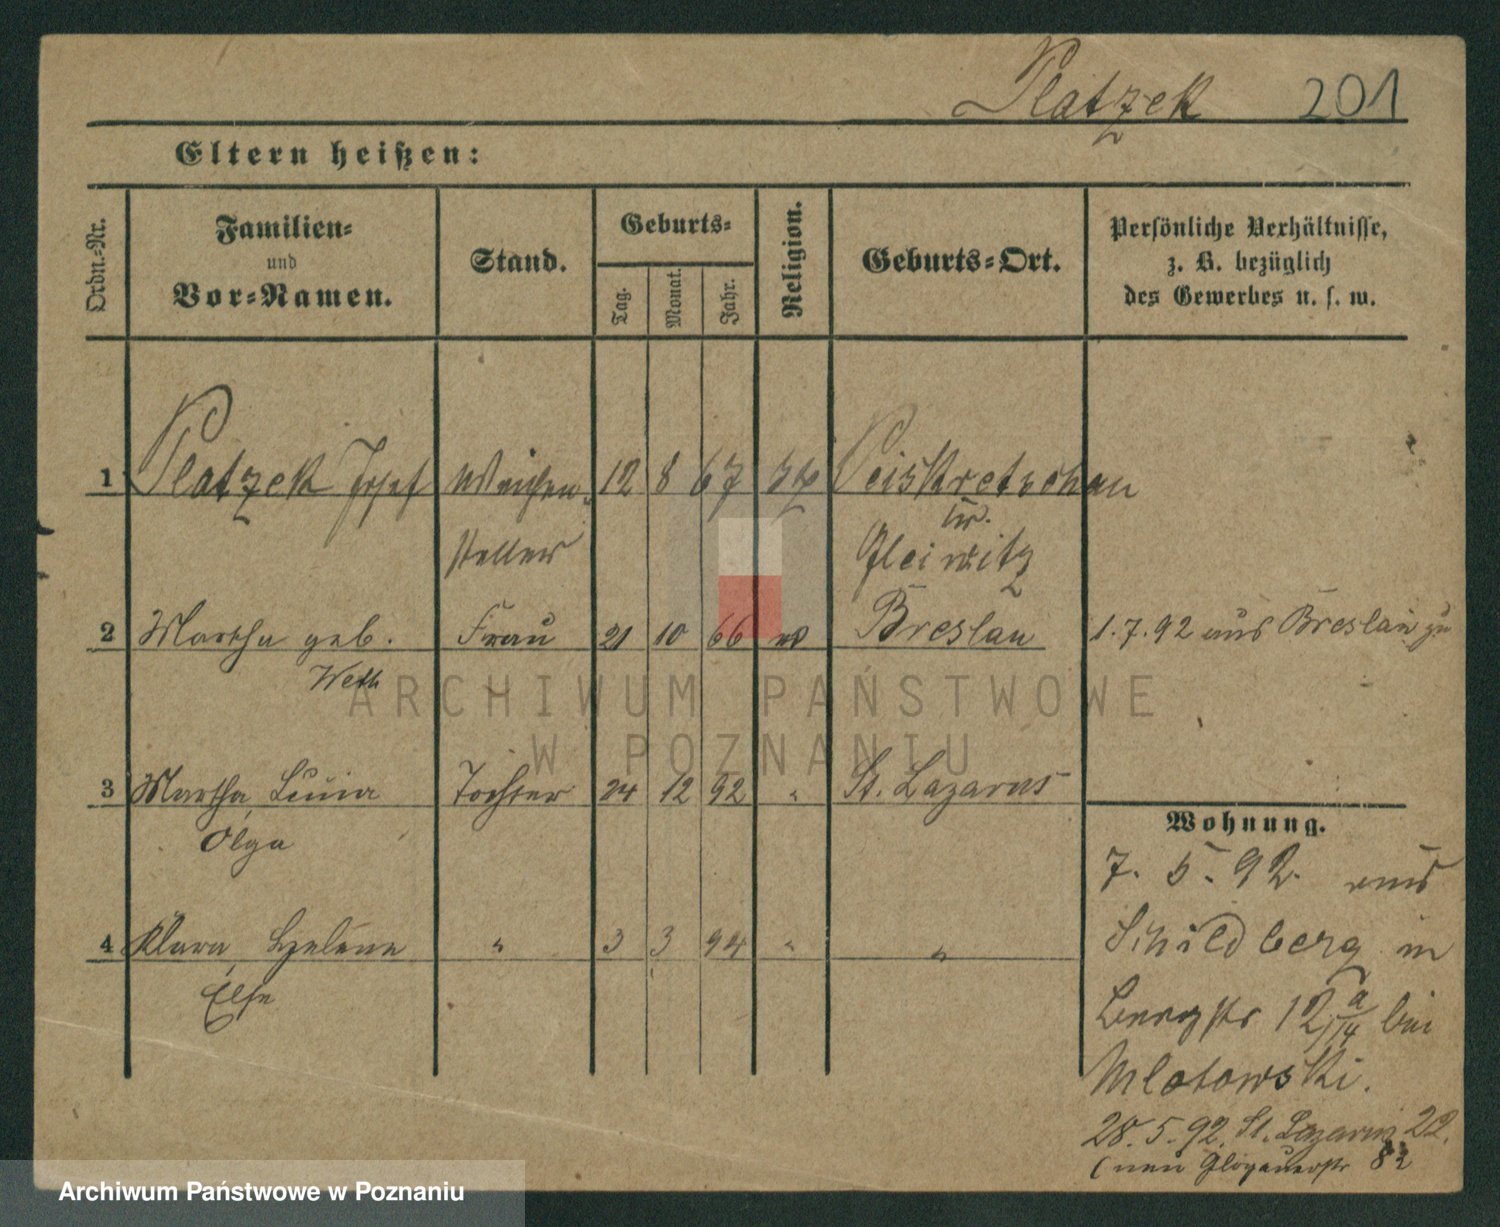 Platzek 201
Eltern heißen:
Ordn.-Nr.
Familien-
und
Vor-Namen.
Stand.
Geburts-
Tag.
Monat.
Jahr.
Religion.
Geburts-Ort.
Persönliche Verhältnisse,
z. B. bezüglich
des Gewerbes u. s. w.
1 Platzek Josef Weichen- 12 8 67 kt Peiskretschau
steller Kr. Gleiwitz
2 Martha geb. Frau 21 10 66 Breslau 1.7.92 aus Breslau zu
Weth
3 Martha, Luise Tochter 24 12 92 " St. Lazarus
Olga
4 Klara, Helene " 3 3 94 " "
Else
Wohnung.
7. 5. 92. aus
Schildberg in
Bergstr 12a/14 bei
Mlotowski.
28.5.92. St. Lazarus 22.
(neu Glogauerstr 82
ARCHIWUM PAŃSTWOWE
W POZNANIU
Archiwum Państwowe w Poznaniu